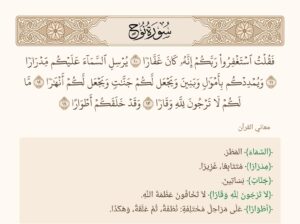 سُورَةُ نُوحٍ
فَقُلْتُ ٱسْتَغْفِرُوا۟ رَبَّكُمْ إِنَّهُۥ كَانَ غَفَّارًا ﴿١٠﴾ يُرْسِلِ ٱلسَّمَآءَ عَلَيْكُم مِّدْرَارًا
﴿١١﴾ وَيُمْدِدْكُم بِأَمْوَٰلٍ وَبَنِينَ وَيَجْعَل لَّكُمْ جَنَّٰتٍ وَيَجْعَل لَّكُمْ أَنْهَٰرًا ﴿١٢﴾ مَّا
لَكُمْ لَا تَرْجُونَ لِلَّهِ وَقَارًا ﴿١٣﴾ وَقَدْ خَلَقَكُمْ أَطْوَارًا ﴿١٤﴾
معاني القرآن
﴿السَّمَاءَ﴾ المَطَرَ.
﴿مِدْرَارًا﴾ مُتَتَابِعًا، غَزِيرًا.
﴿جَنَّاتٍ﴾ بَسَاتِينَ
﴿لَا تَرْجُونَ لِلَّهِ وَقَارًا﴾ لَا تَخَافُونَ عَظَمَةَ اللَّهِ.
﴿أَطْوَارًا﴾ عَلَى مَرَاحِلَ مُخْتَلِفَةٍ: نُطْفَةً، ثُمَّ عَلَقَةً، وَهَكَذَا.